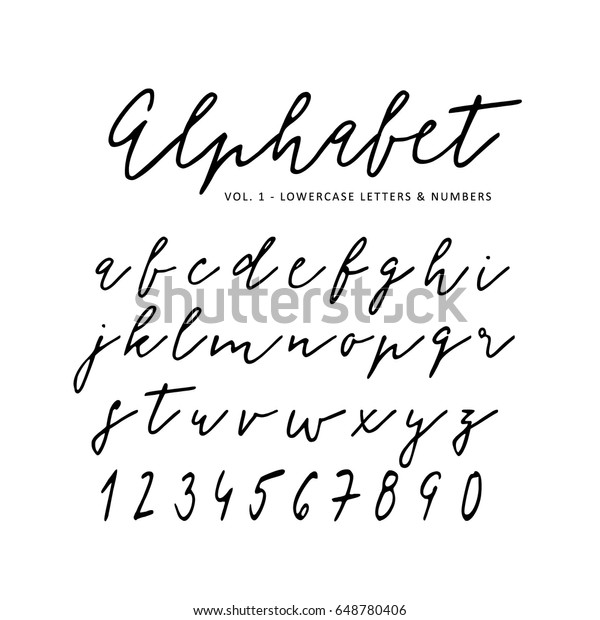 Alphabet
VOL. 1 - LOWERCASE LETTERS & NUMBERS
a b c d e f g h i
j k l m n o p q r
s t u v w x y z
1 2 3 4 5 6 7 8 9 0
shutterstock
www.shutterstock.com · 648780406